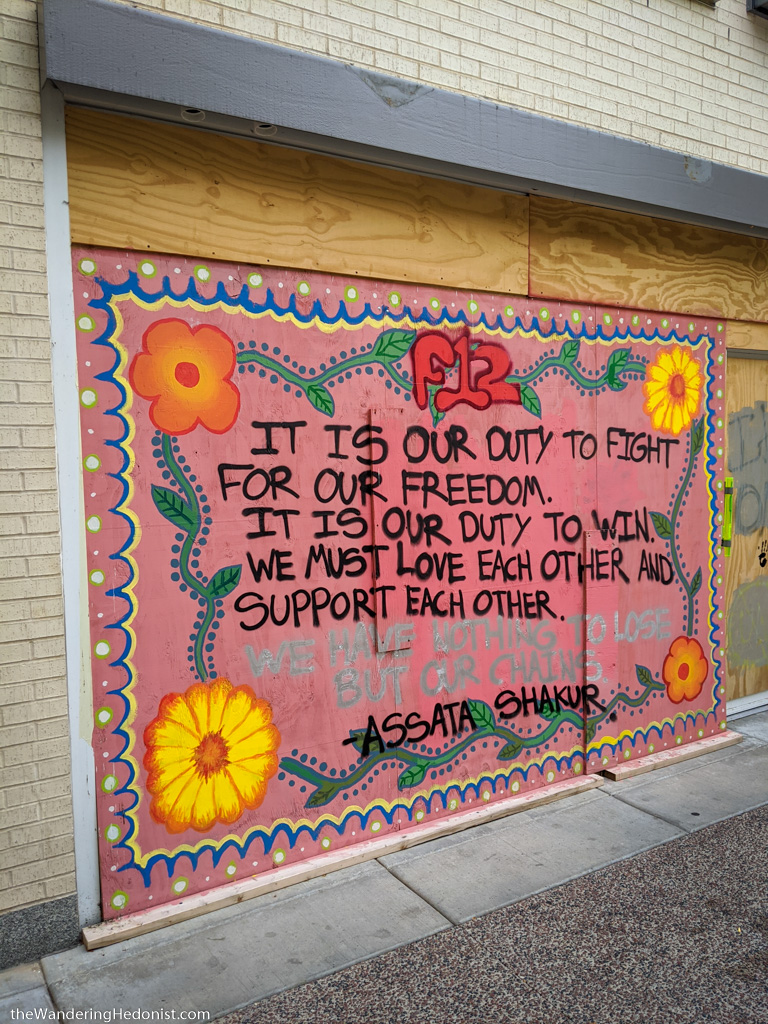 F12
IT IS OUR DUTY TO FIGHT
FOR OUR FREEDOM.
IT IS OUR DUTY TO WIN.
WE MUST LOVE EACH OTHER AND
SUPPORT EACH OTHER.
WE HAVE NOTHING TO LOSE
BUT OUR CHAINS.
-ASSATA SHAKUR.
theWanderingHedonist.com